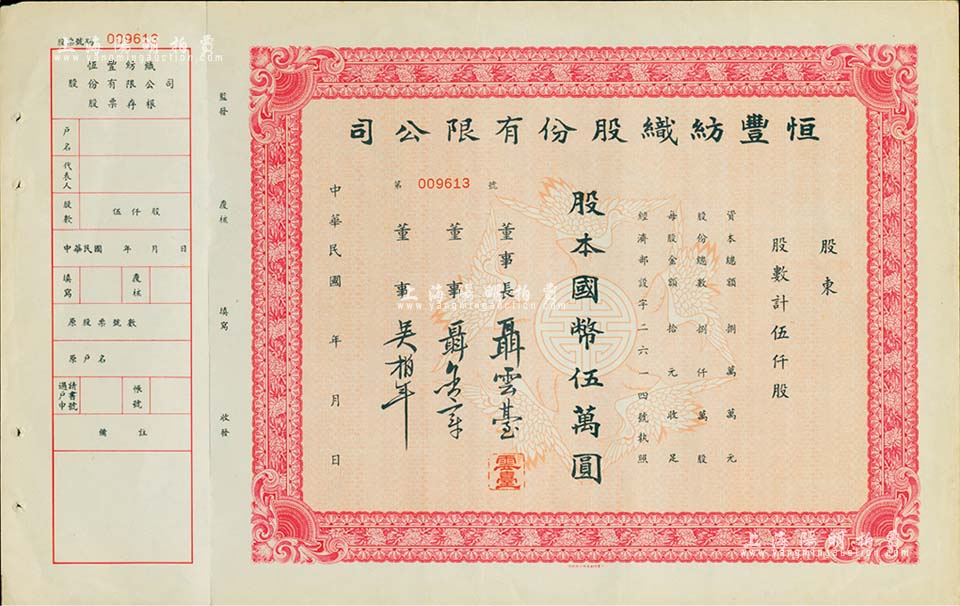 恒豐紡織股份有限公司
股東
股數計伍仟股
資本總額捌萬萬元
股份總數捌仟萬股
每股金額拾元收足
經濟部設字二六一四號執照
股本國幣伍萬圓
第 009613 號
董事長 聶雲臺
雲臺
董事
董事 吳栢年
中華民國 年 月 日
監發
覆核
填寫
收發
股票號碼 009613
恒豐紡織
股份有限公司
股票存根
戶名
代表人
股數 伍仟股
中華民國 年 月 日
填寫
覆核
原股票號數
原戶名
過戶申請書號
帳號
備註
上海陽明拍賣
www.yangmingauction.com
上海陽明拍賣
www.yangmingauction.com
上海陽明拍賣
www.yangmingauction.com